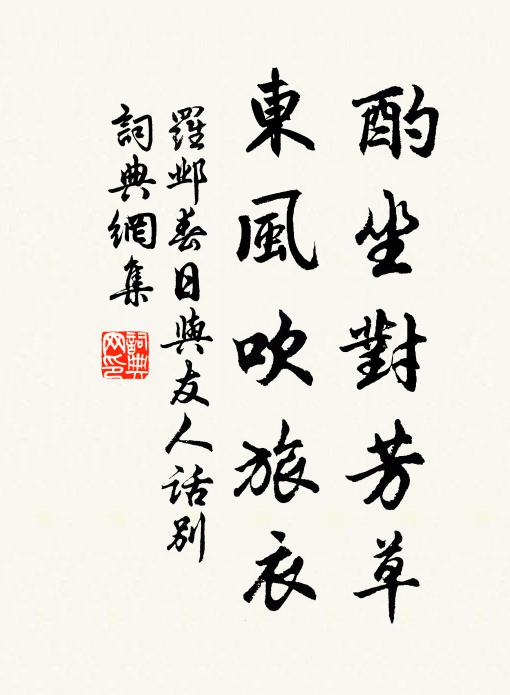 酌坐對芳草
東風吹旅衣
羅邺春日與友人話別
詞典網集
詞典網印